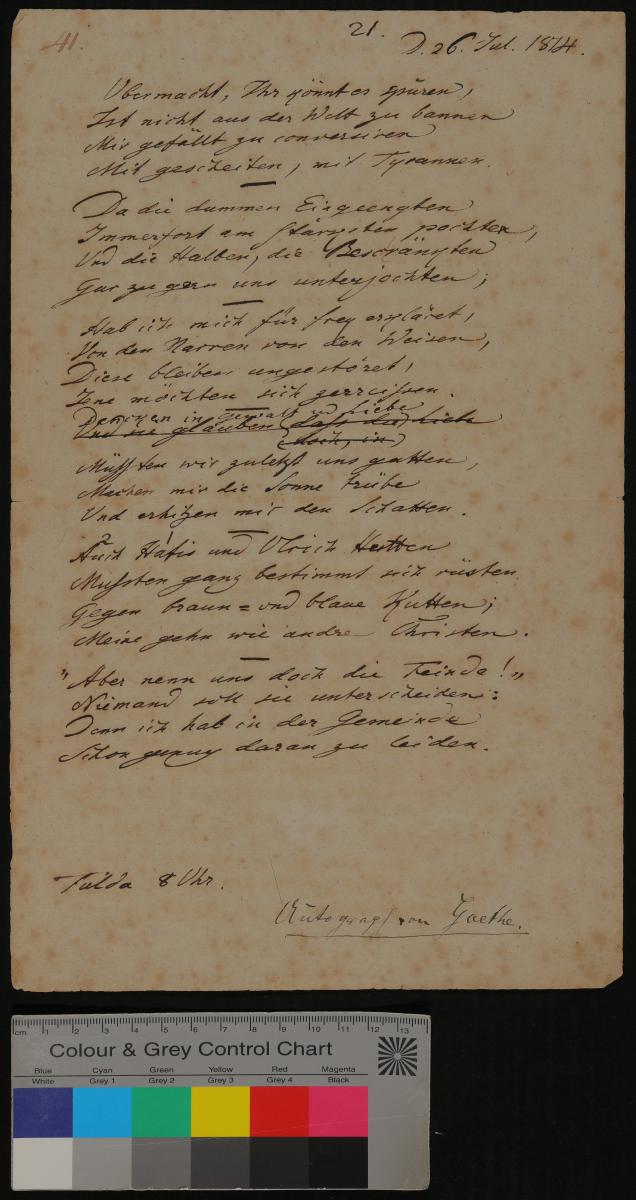 41.
21.
D. 26. Jul. 1814.
Übermacht, Ihr könnt es spüren,
Ist nicht aus der Welt zu bannen
Mir gefällt zu conversiren
Mit gescheiten, mit Tyrannen.
Da die dummen Eingeengten
Immerfort am stärksten pochten,
Und die Halben, die Beschränkten
Gar zu gern uns unterjochten;
Hab ich mich für frey erkläret,
Von den Narren von den Weisen,
Diese bleiben ungestöret,
Jene möchten sich zerreissen.
Denken in Gewalt und Liebe
Und sie glauben dass der Liebe
doch, in
Müssten wir zuletzt uns gatten,
Machen mir die Sonne trübe
Und erhitzen mir den Schatten.
2 1
Auch Hafis und Ulrich Hutten
Mussten ganz bestimmt sich rüsten
Gegen braun= und blaue Kutten;
Meine gehn wie andre Christen.
"Aber nenn uns doch die Feinde!"
Niemand soll sie unterscheiden:
Denn ich hab in der Gemeinde
Schon genug daran zu leiden.
Fulda 8 Uhr.
Autograph von Goethe.
cm 1 2 3 4 5 6 7 8 9 10 11 12 13
Colour & Grey Control Chart
Blue Cyan Green Yellow Red Magenta
White Grey 1 Grey 2 Grey 3 Grey 4 Black